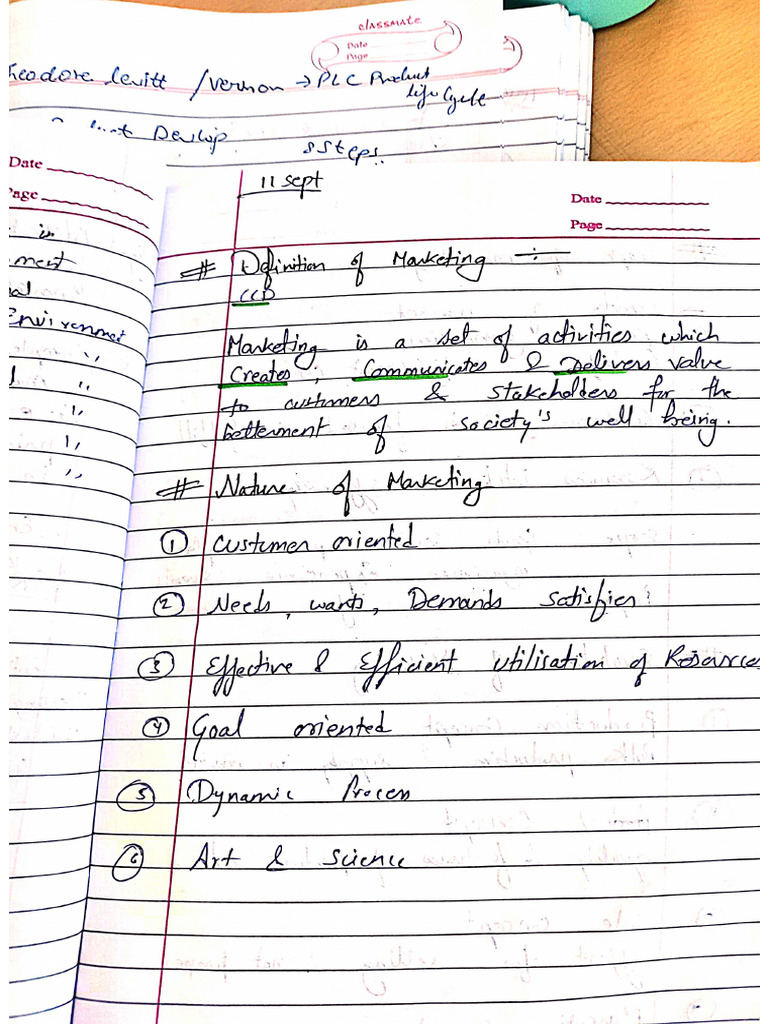 classmate
Date
Page
Theodore Levitt / Vernon → PLC Product
life Cycle
Develop 8 Steps.
Date
Page
in
ment
al
Environment
"
"
"
"
"
11 sept
Date
Page
# Definition of Marketing :-
CCD
Marketing is a set of activities which
Creates, Communicates & Delivers value
to customers & stakeholders for the
betterment of society's well being.
# Nature of Marketing
① Customer oriented
② Needs, wants, Demands Satisfier
③ Effective & Efficient utilisation of Resources
④ Goal oriented
⑤ Dynamic Process
⑥ Art & Science